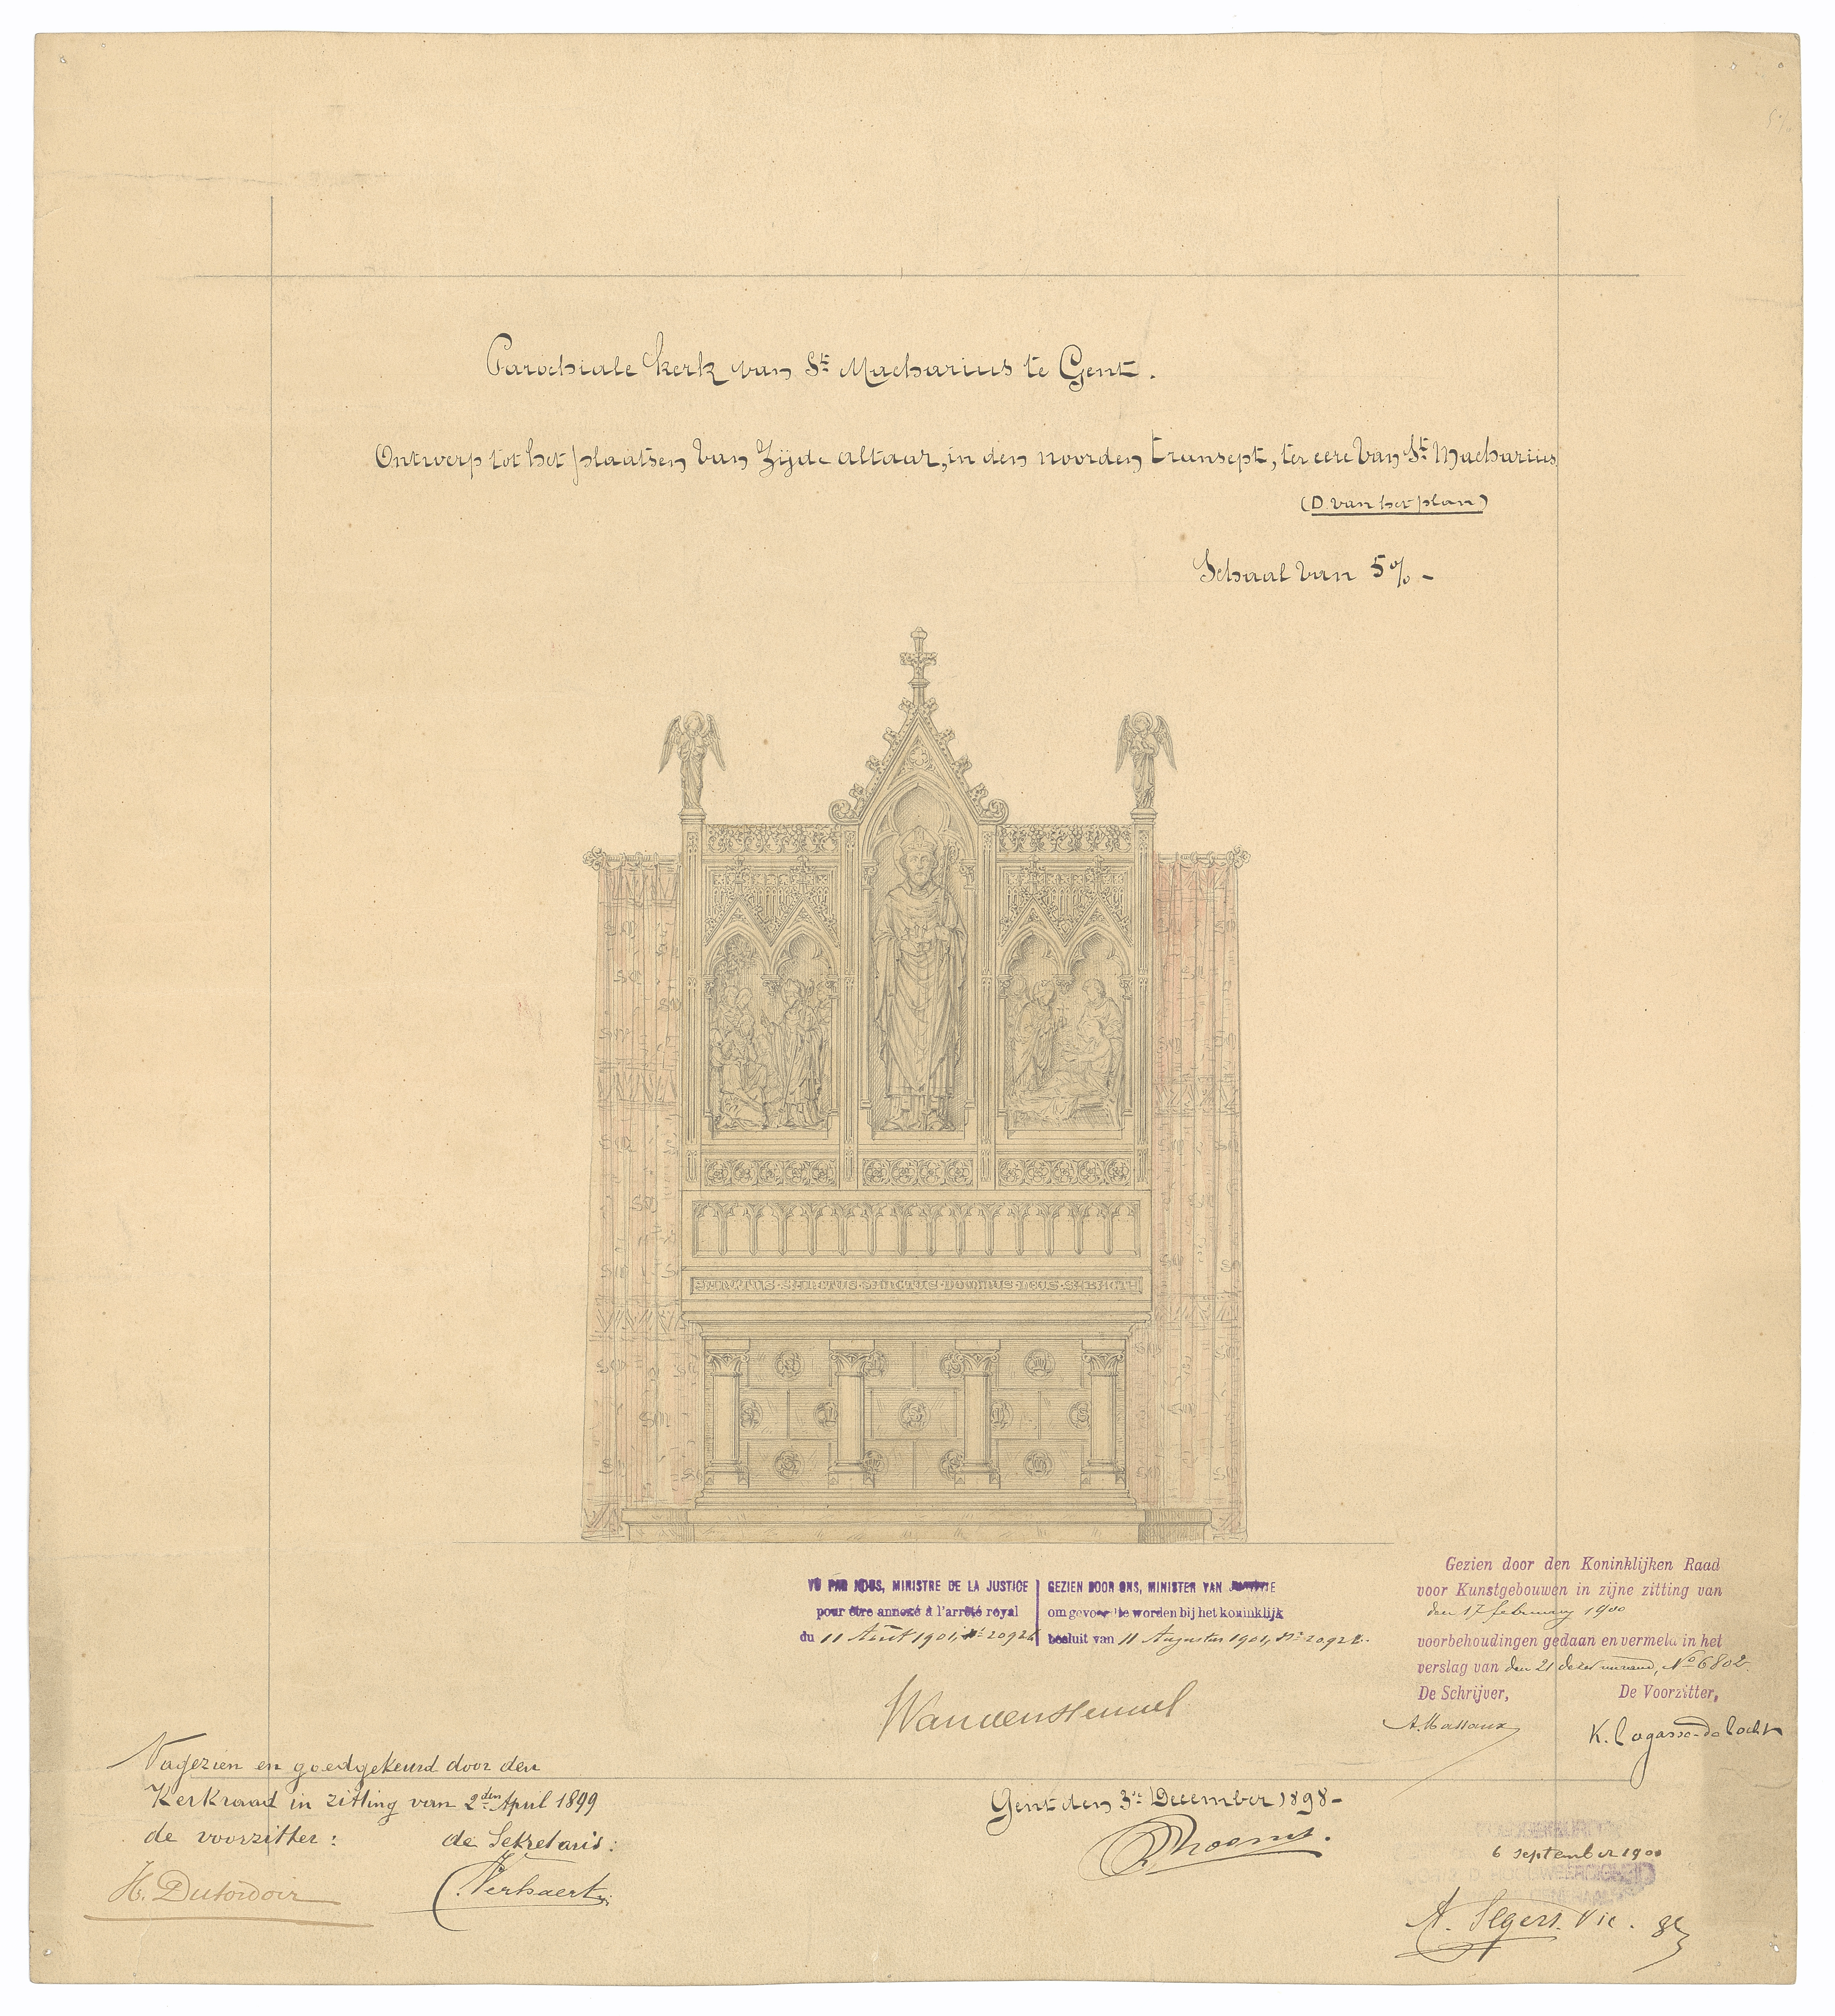 Parochiale kerk van St Macharius te Gent.
Ontwerp tot het plaatsen van zijde altaar, in den noorden transept, ter eere van St Macharius
(D. van het plan)
Schaal van 5% -
SANCTUS · SANCTUS · SANCTUS · DOMINUS · DEUS · SABAOTH
VU PAR NOUS, MINISTRE DE LA JUSTICE
pour être annexé à l'arrêté royal
du 11 Août 1901, No 20924
GEZIEN DOOR ONS, MINISTER VAN
om gevoegd te worden bij het koninklijk
besluit van 11 Augustus 1901, No 20924.
Gezien door den Koninklijken Raad
voor Kunstgebouwen in zijne zitting van
den 17 february 1900
voorbehoudingen gedaan en vermeld in het
verslag van den 21 dezer maand, No 6802
De Schrijver, De Voorzitter,
A. Massaux K. Lagasse-de Locht
Nagezien en goedgekeurd door den
Kerkraad in zitting van 2den April 1899
de voorzitter: de Sekretaris:
H. Dutordoir Verhaert
Gent den 3e December 1898 -
6 september 1900
A. Segers. Vic. g